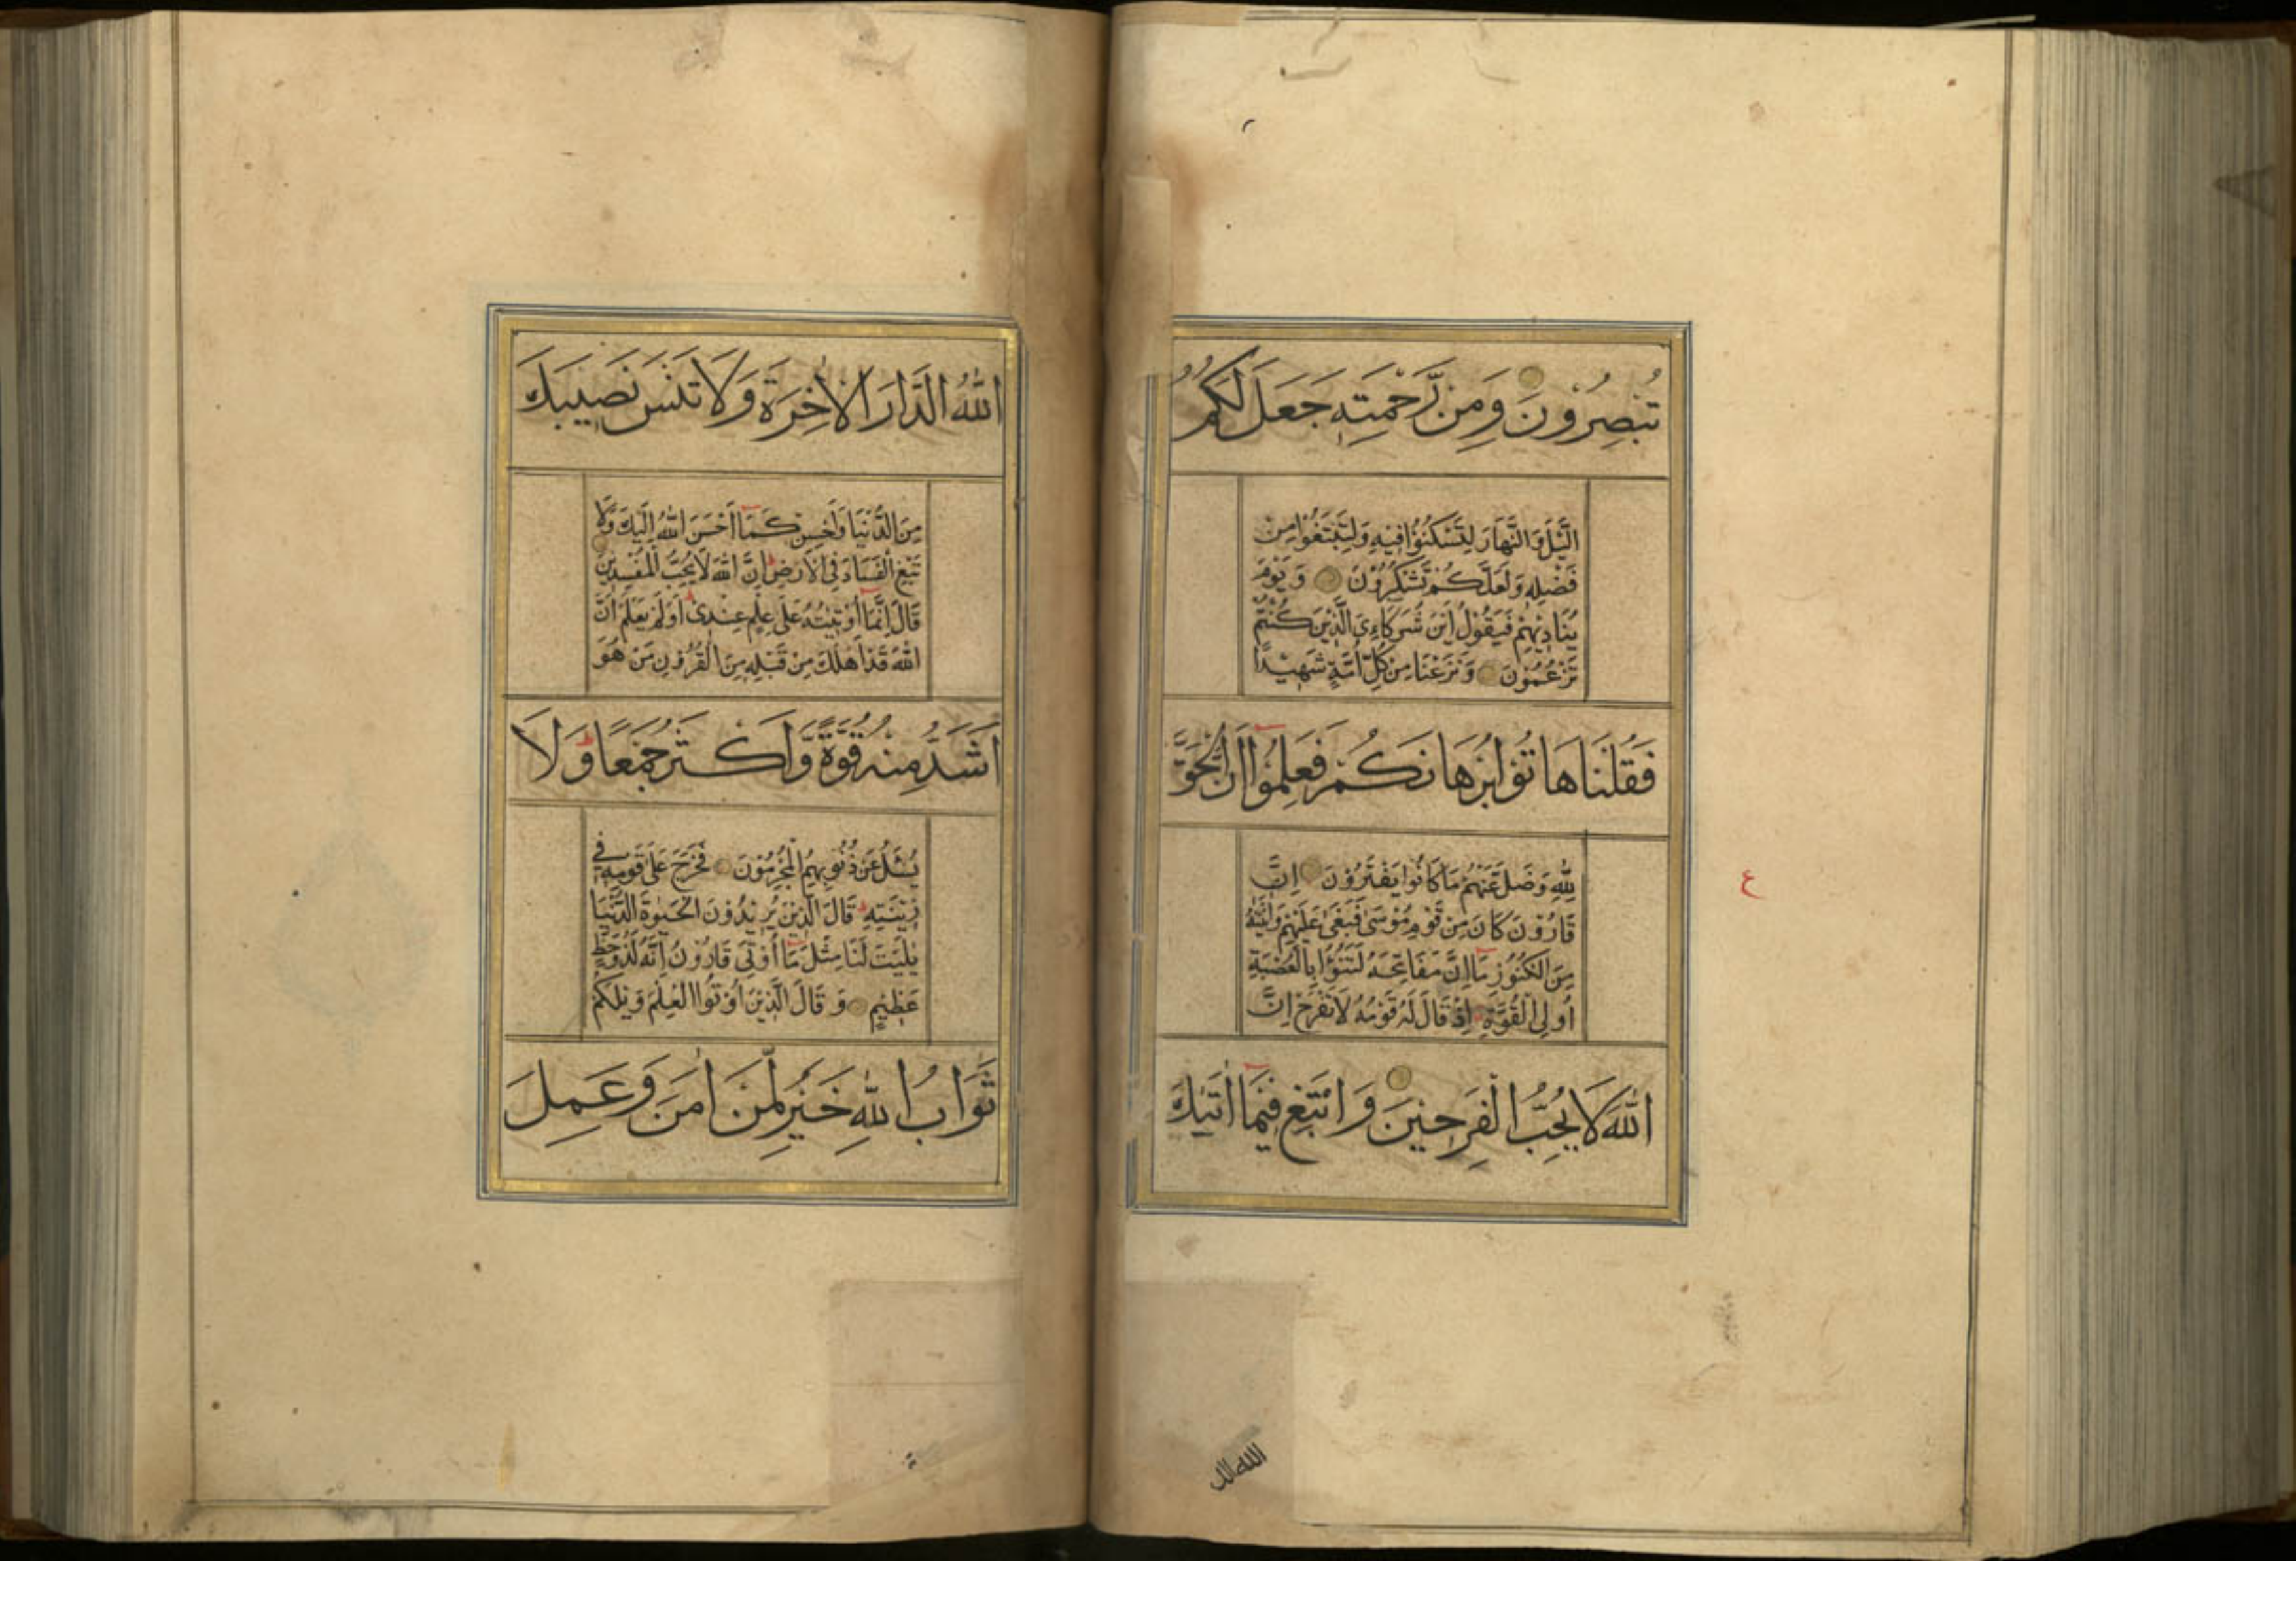 تُبْصِرُونَ وَمِنْ رَّحْمَتِهٖ جَعَلَ لَكُمُ
الَّيْلَ وَالنَّهَارَ لِتَسْكُنُوْا فِيْهِ وَلِتَبْتَغُوْا مِنْ
فَضْلِهٖ وَلَعَلَّكُمْ تَشْكُرُوْنَ وَيَوْمَ
يُنَادِيْهِمْ فَيَقُوْلُ اَيْنَ شُرَكَاءِيَ الَّذِيْنَ كُنْتُمْ
تَزْعُمُوْنَ وَنَزَعْنَا مِنْ كُلِّ اُمَّةٍ شَهِيْدًا
فَقُلْنَا هَاتُوْا بُرْهَانَكُمْ فَعَلِمُوْا اَنَّ الْحَقَّ
لِلّٰهِ وَضَلَّ عَنْهُمْ مَا كَانُوْا يَفْتَرُوْنَ اِنَّ
قَارُوْنَ كَانَ مِنْ قَوْمِ مُوْسٰى فَبَغٰى عَلَيْهِمْ وَاٰتَيْنٰهُ
مِنَ الْكُنُوْزِ مَا اِنَّ مَفَاتِحَهُ لَتَنُوْاُ بِالْعُصْبَةِ
اُولِى الْقُوَّةِ اِذْ قَالَ لَهُ قَوْمُهُ لَا تَفْرَحْ اِنَّ
اللّٰهَ لَا يُحِبُّ الْفَرِحِيْنَ وَابْتَغِ فِيْمَا اٰتٰيكَ
ع
الله الدار
اللّٰهُ الدَّارَ الْاٰخِرَةَ وَلَا تَنْسَ نَصِيْبَكَ
مِنَ الدُّنْيَا وَاَحْسِنْ كَمَا اَحْسَنَ اللّٰهُ اِلَيْكَ وَلَا
تَبْغِ الْفَسَادَ فِى الْاَرْضِ اِنَّ اللّٰهَ لَا يُحِبُّ الْمُفْسِدِيْنَ
قَالَ اِنَّمَا اُوْتِيْتُهُ عَلٰى عِلْمٍ عِنْدِىْ اَوَلَمْ يَعْلَمْ اَنَّ
اللّٰهَ قَدْ اَهْلَكَ مِنْ قَبْلِهٖ مِنَ الْقُرُوْنِ مَنْ هُوَ
اَشَدُّ مِنْهُ قُوَّةً وَّاَكْثَرُ جَمْعًا وَلَا
يُسْئَلُ عَنْ ذُنُوْبِهِمُ الْمُجْرِمُوْنَ فَخَرَجَ عَلٰى قَوْمِهٖ فِىْ
زِيْنَتِهٖ قَالَ الَّذِيْنَ يُرِيْدُوْنَ الْحَيٰوةَ الدُّنْيَا
يٰلَيْتَ لَنَا مِثْلَ مَا اُوْتِىَ قَارُوْنُ اِنَّهُ لَذُوْ حَظٍّ
عَظِيْمٍ وَقَالَ الَّذِيْنَ اُوْتُوا الْعِلْمَ وَيْلَكُمْ
ثَوَابُ اللّٰهِ خَيْرٌ لِّمَنْ اٰمَنَ وَعَمِلَ